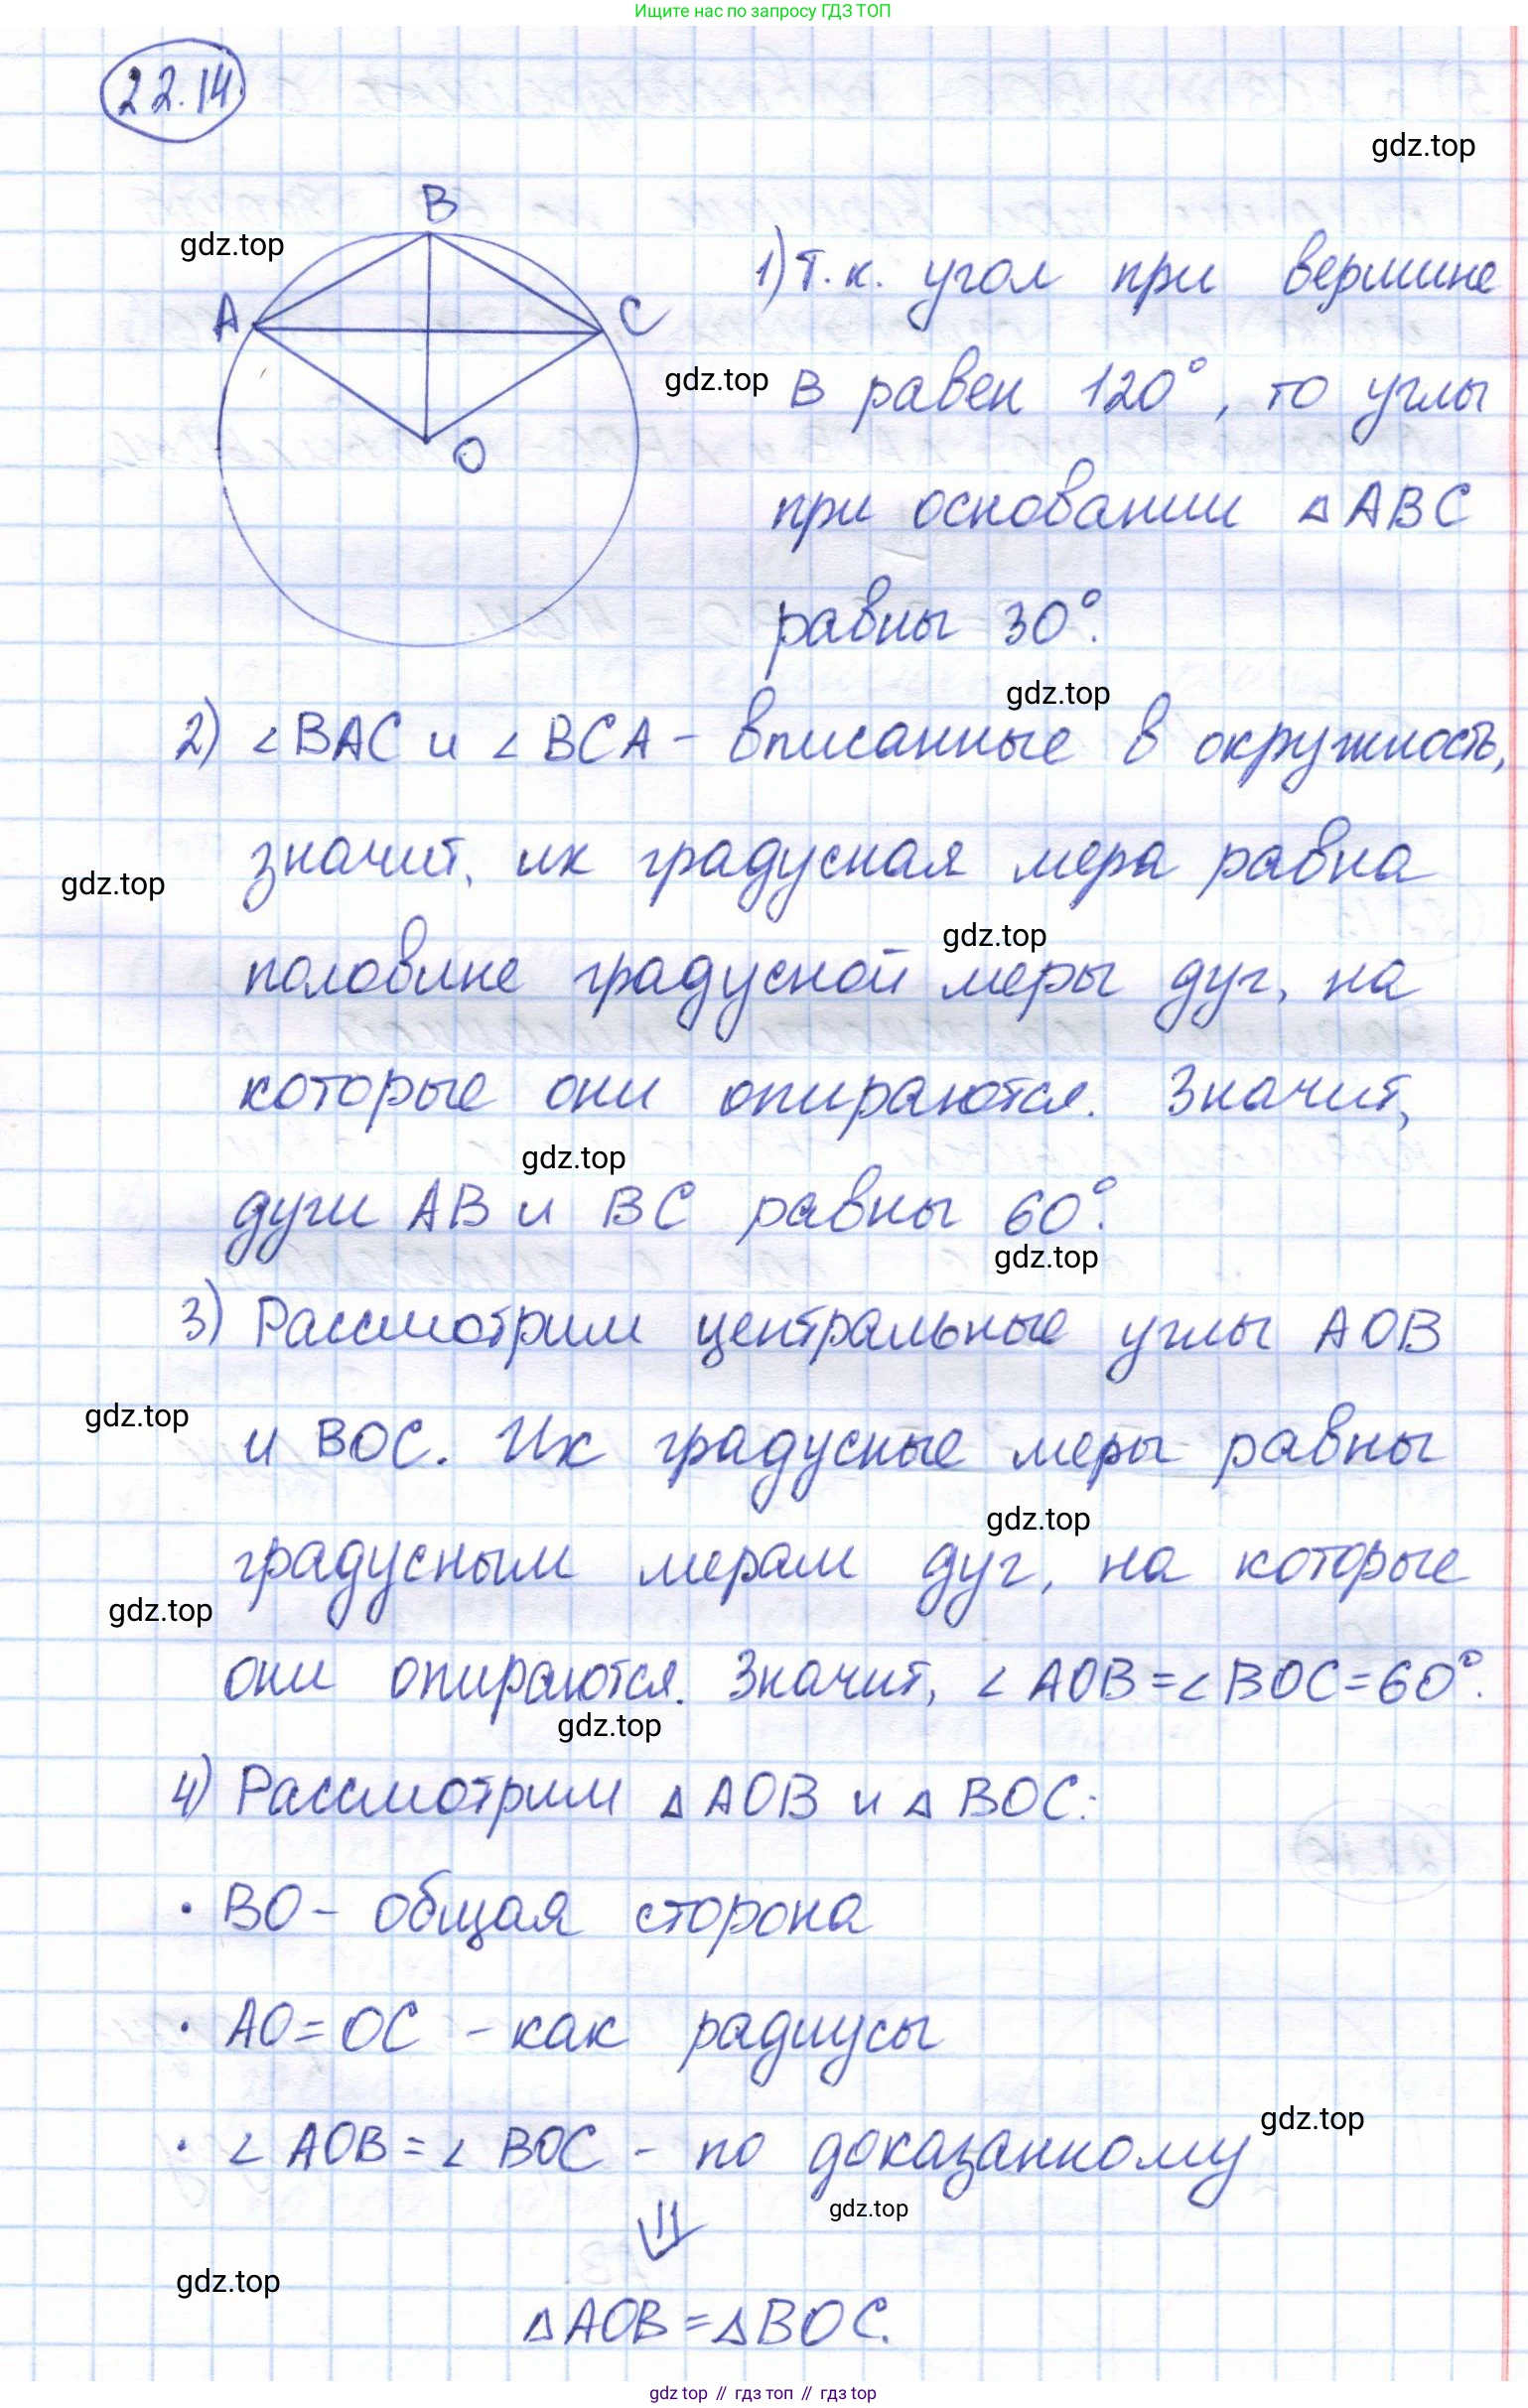 Ищите нас по запросу ГДЗ ТОП
22.14
gdz.top
B
gdz.top
A
C
O
1) Т.к. угол при вершине
gdz.top
В равен 120°, то углы
при основании △ABC
равны 30°.
gdz.top
2) ∠BAC и ∠BCA - вписанные в окружность,
значит, их градусная мера равна
gdz.top
gdz.top
половине градусной меры дуг, на
которые они опираются. Значит,
gdz.top
дуги AB и BC равны 60°.
gdz.top
3) Рассмотрим центральные углы AOB
gdz.top
и BOC. Их градусные меры равны
gdz.top
градусным мерам дуг, на которые
gdz.top
они опираются. Значит, ∠AOB=∠BOC=60°.
gdz.top
4) Рассмотрим △AOB и △BOC:
· BO - общая сторона
· AO=OC - как радиусы
gdz.top
· ∠AOB=∠BOC - по доказанному
gdz.top
⇓
gdz.top
△AOB=△BOC.
gdz top // гдз топ // gdz top